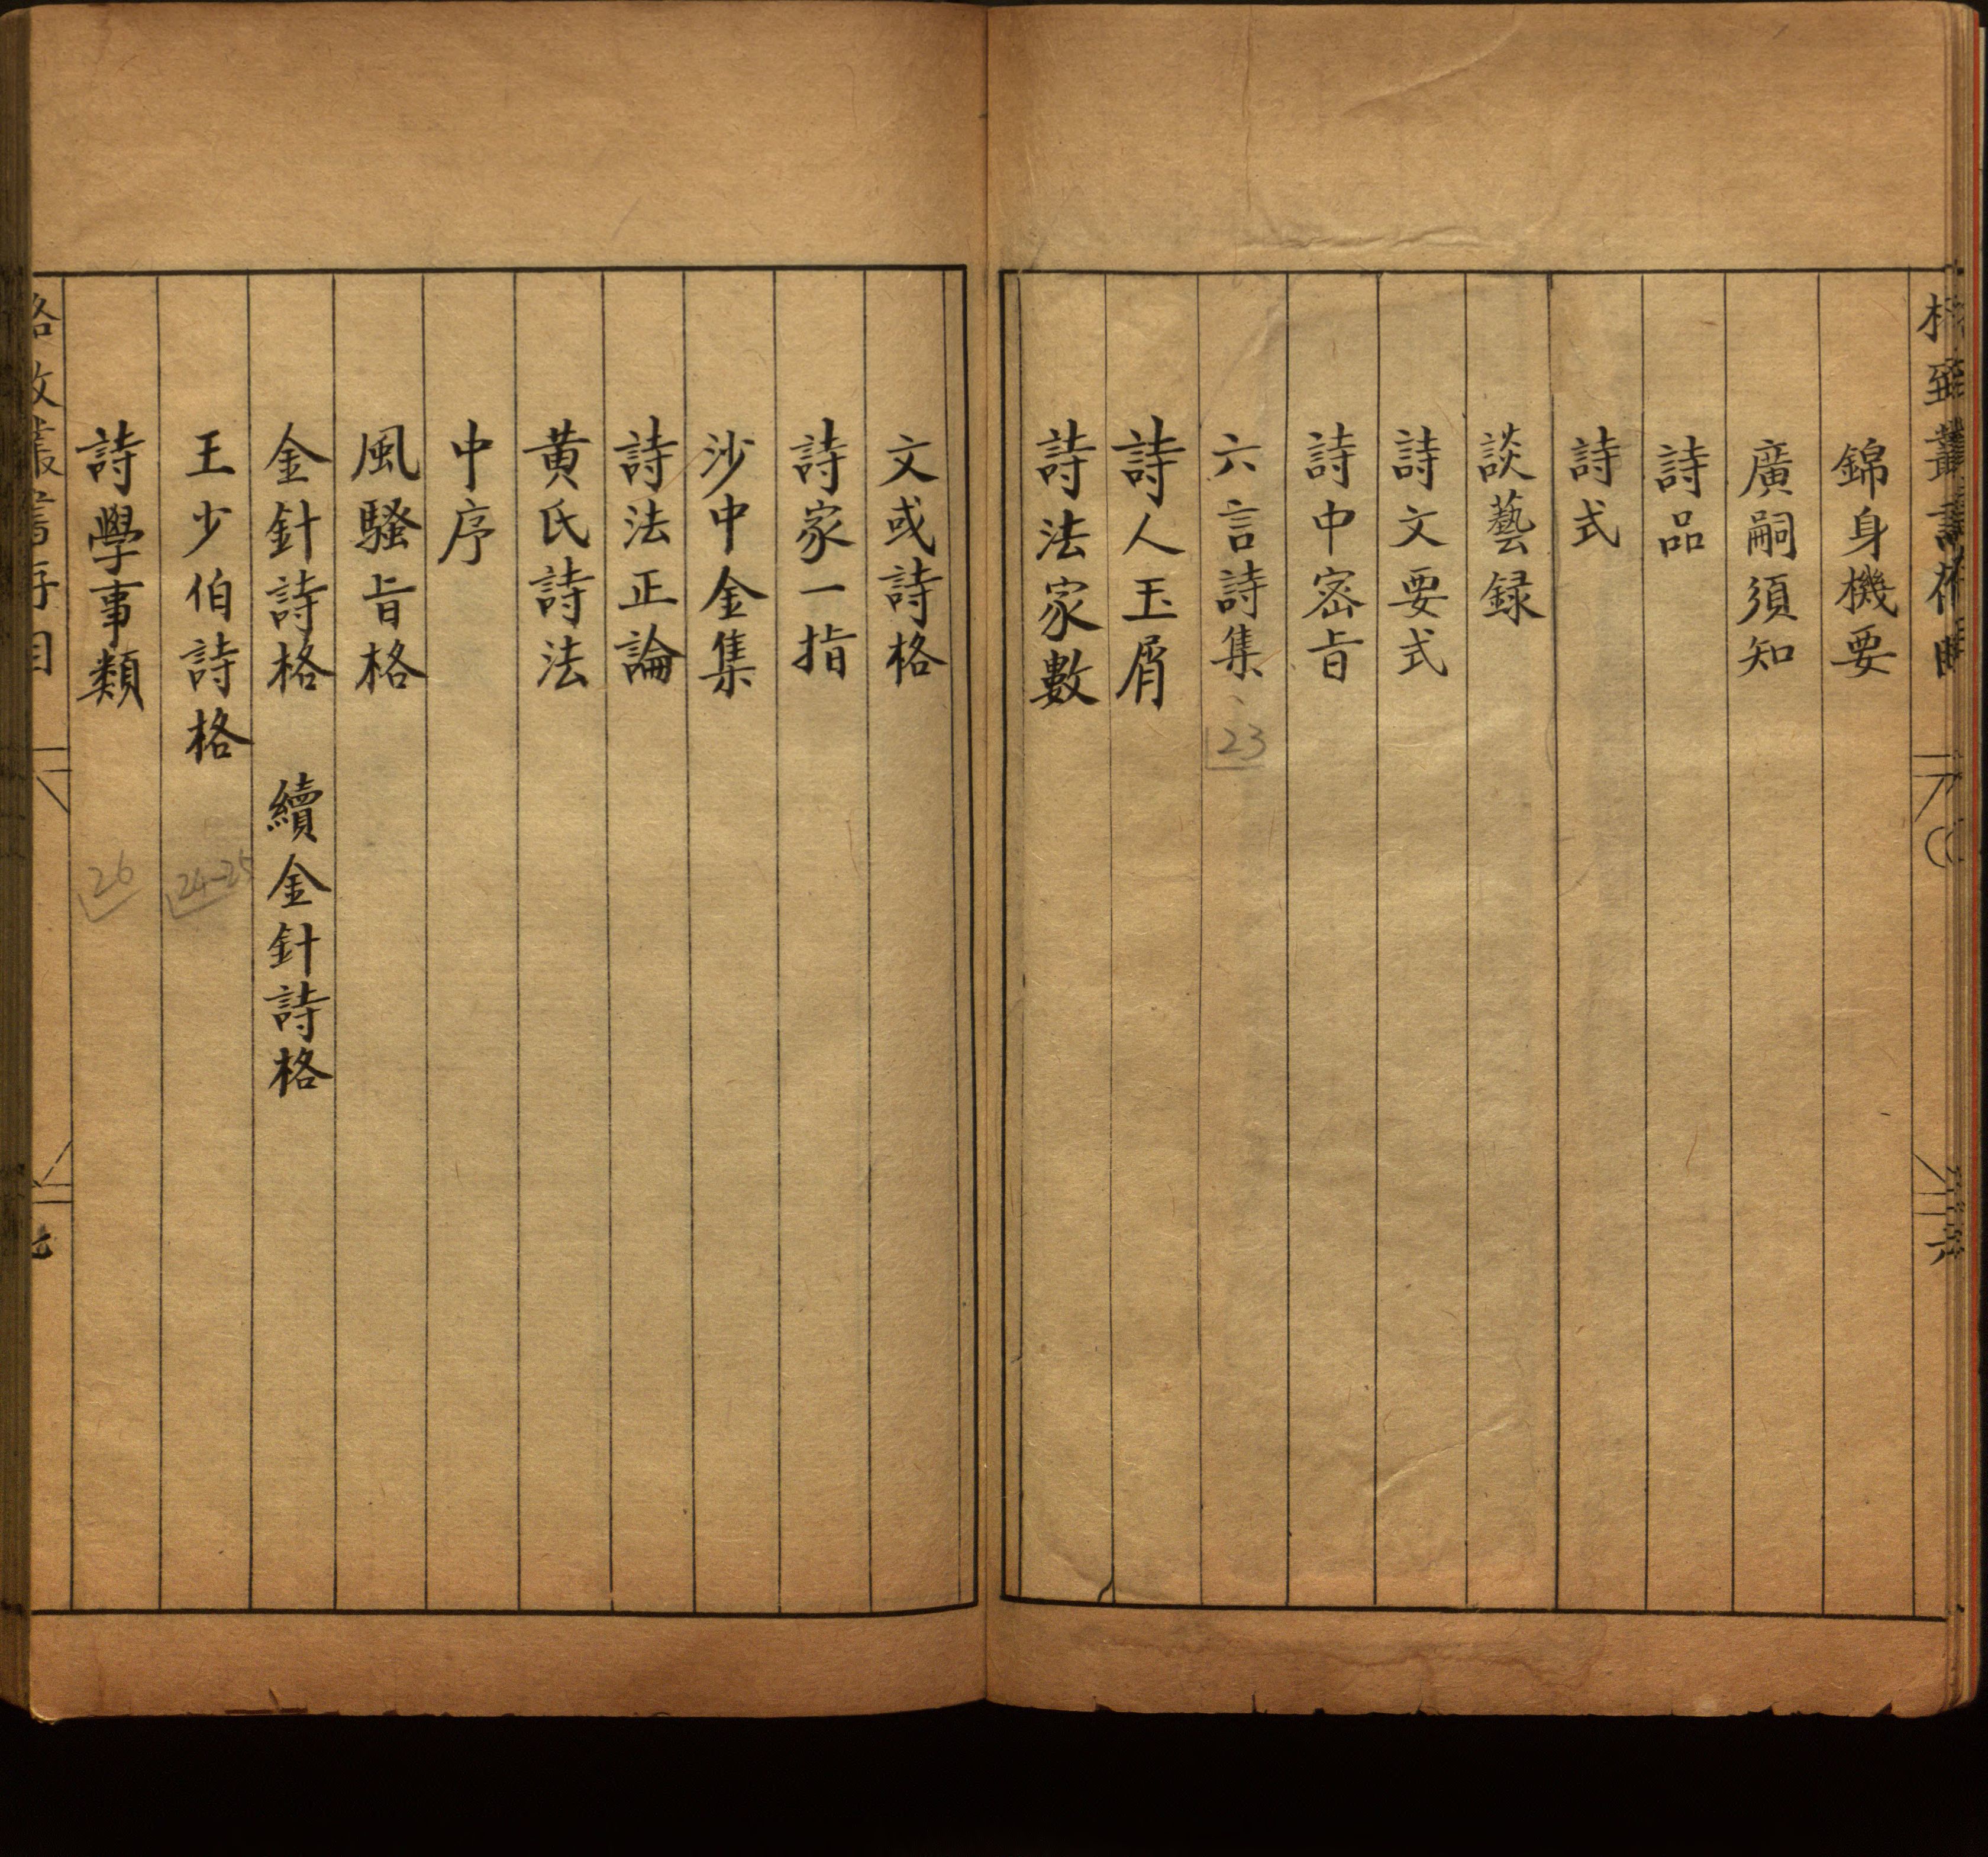 錦身機要
廣嗣須知
詩品
詩式
談藝録
詩文要式
詩中宻旨
六言詩集、 23
詩人玉屑
詩法家數
文彧詩格
詩家一指
沙中金集
詩法正論
黄氏詩法
中序
風騷旨格
金針詩格 續金針詩格
王少伯詩格 24-25
詩學事類 26